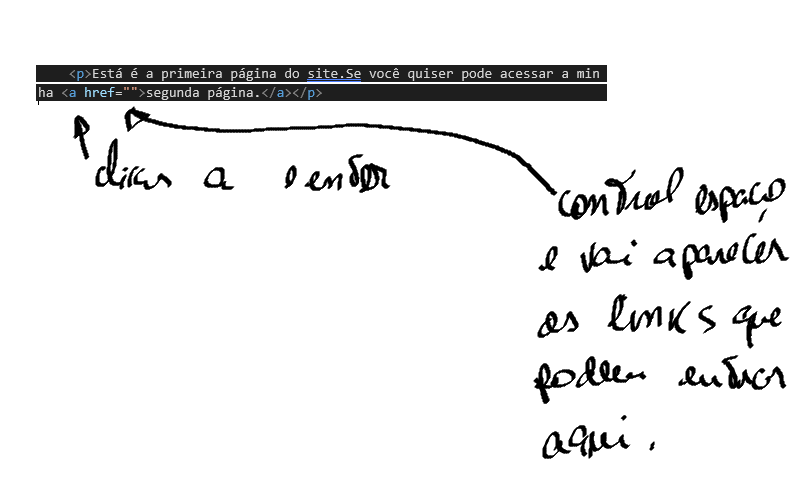 <p>Está é a primeira página do site.Se você quiser pode acessar a min
ha <a href="">segunda página.</a></p>
clicar a e enter
control espaço
e vai aparecer
os links que
podem entrar
aqui.